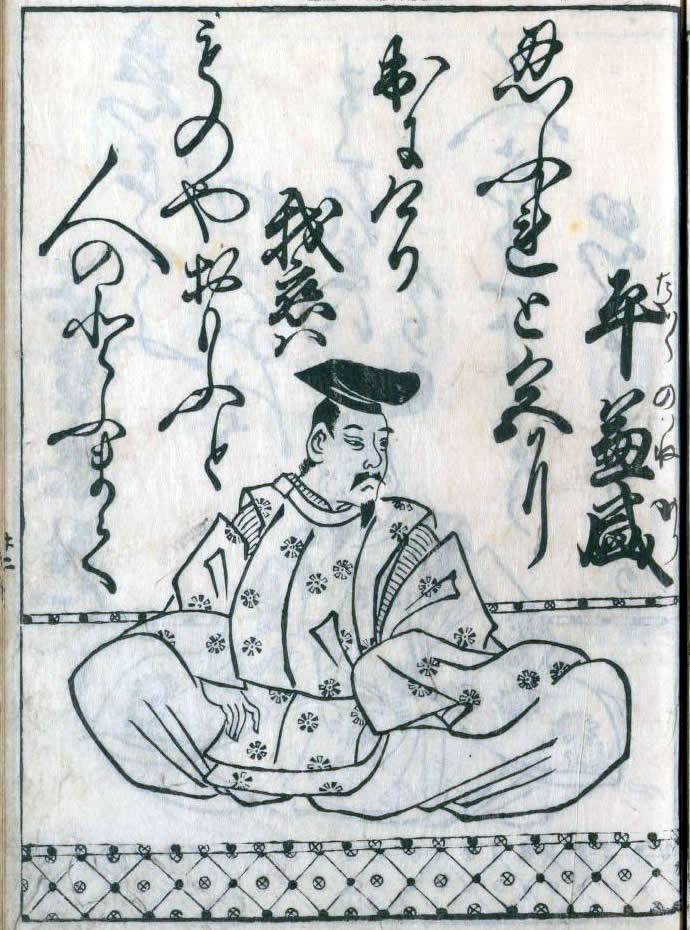 平兼盛
たいらのかねもり
忍ふれと色に
出にけり
我恋ハ
ものやおもふと
人のとふまて